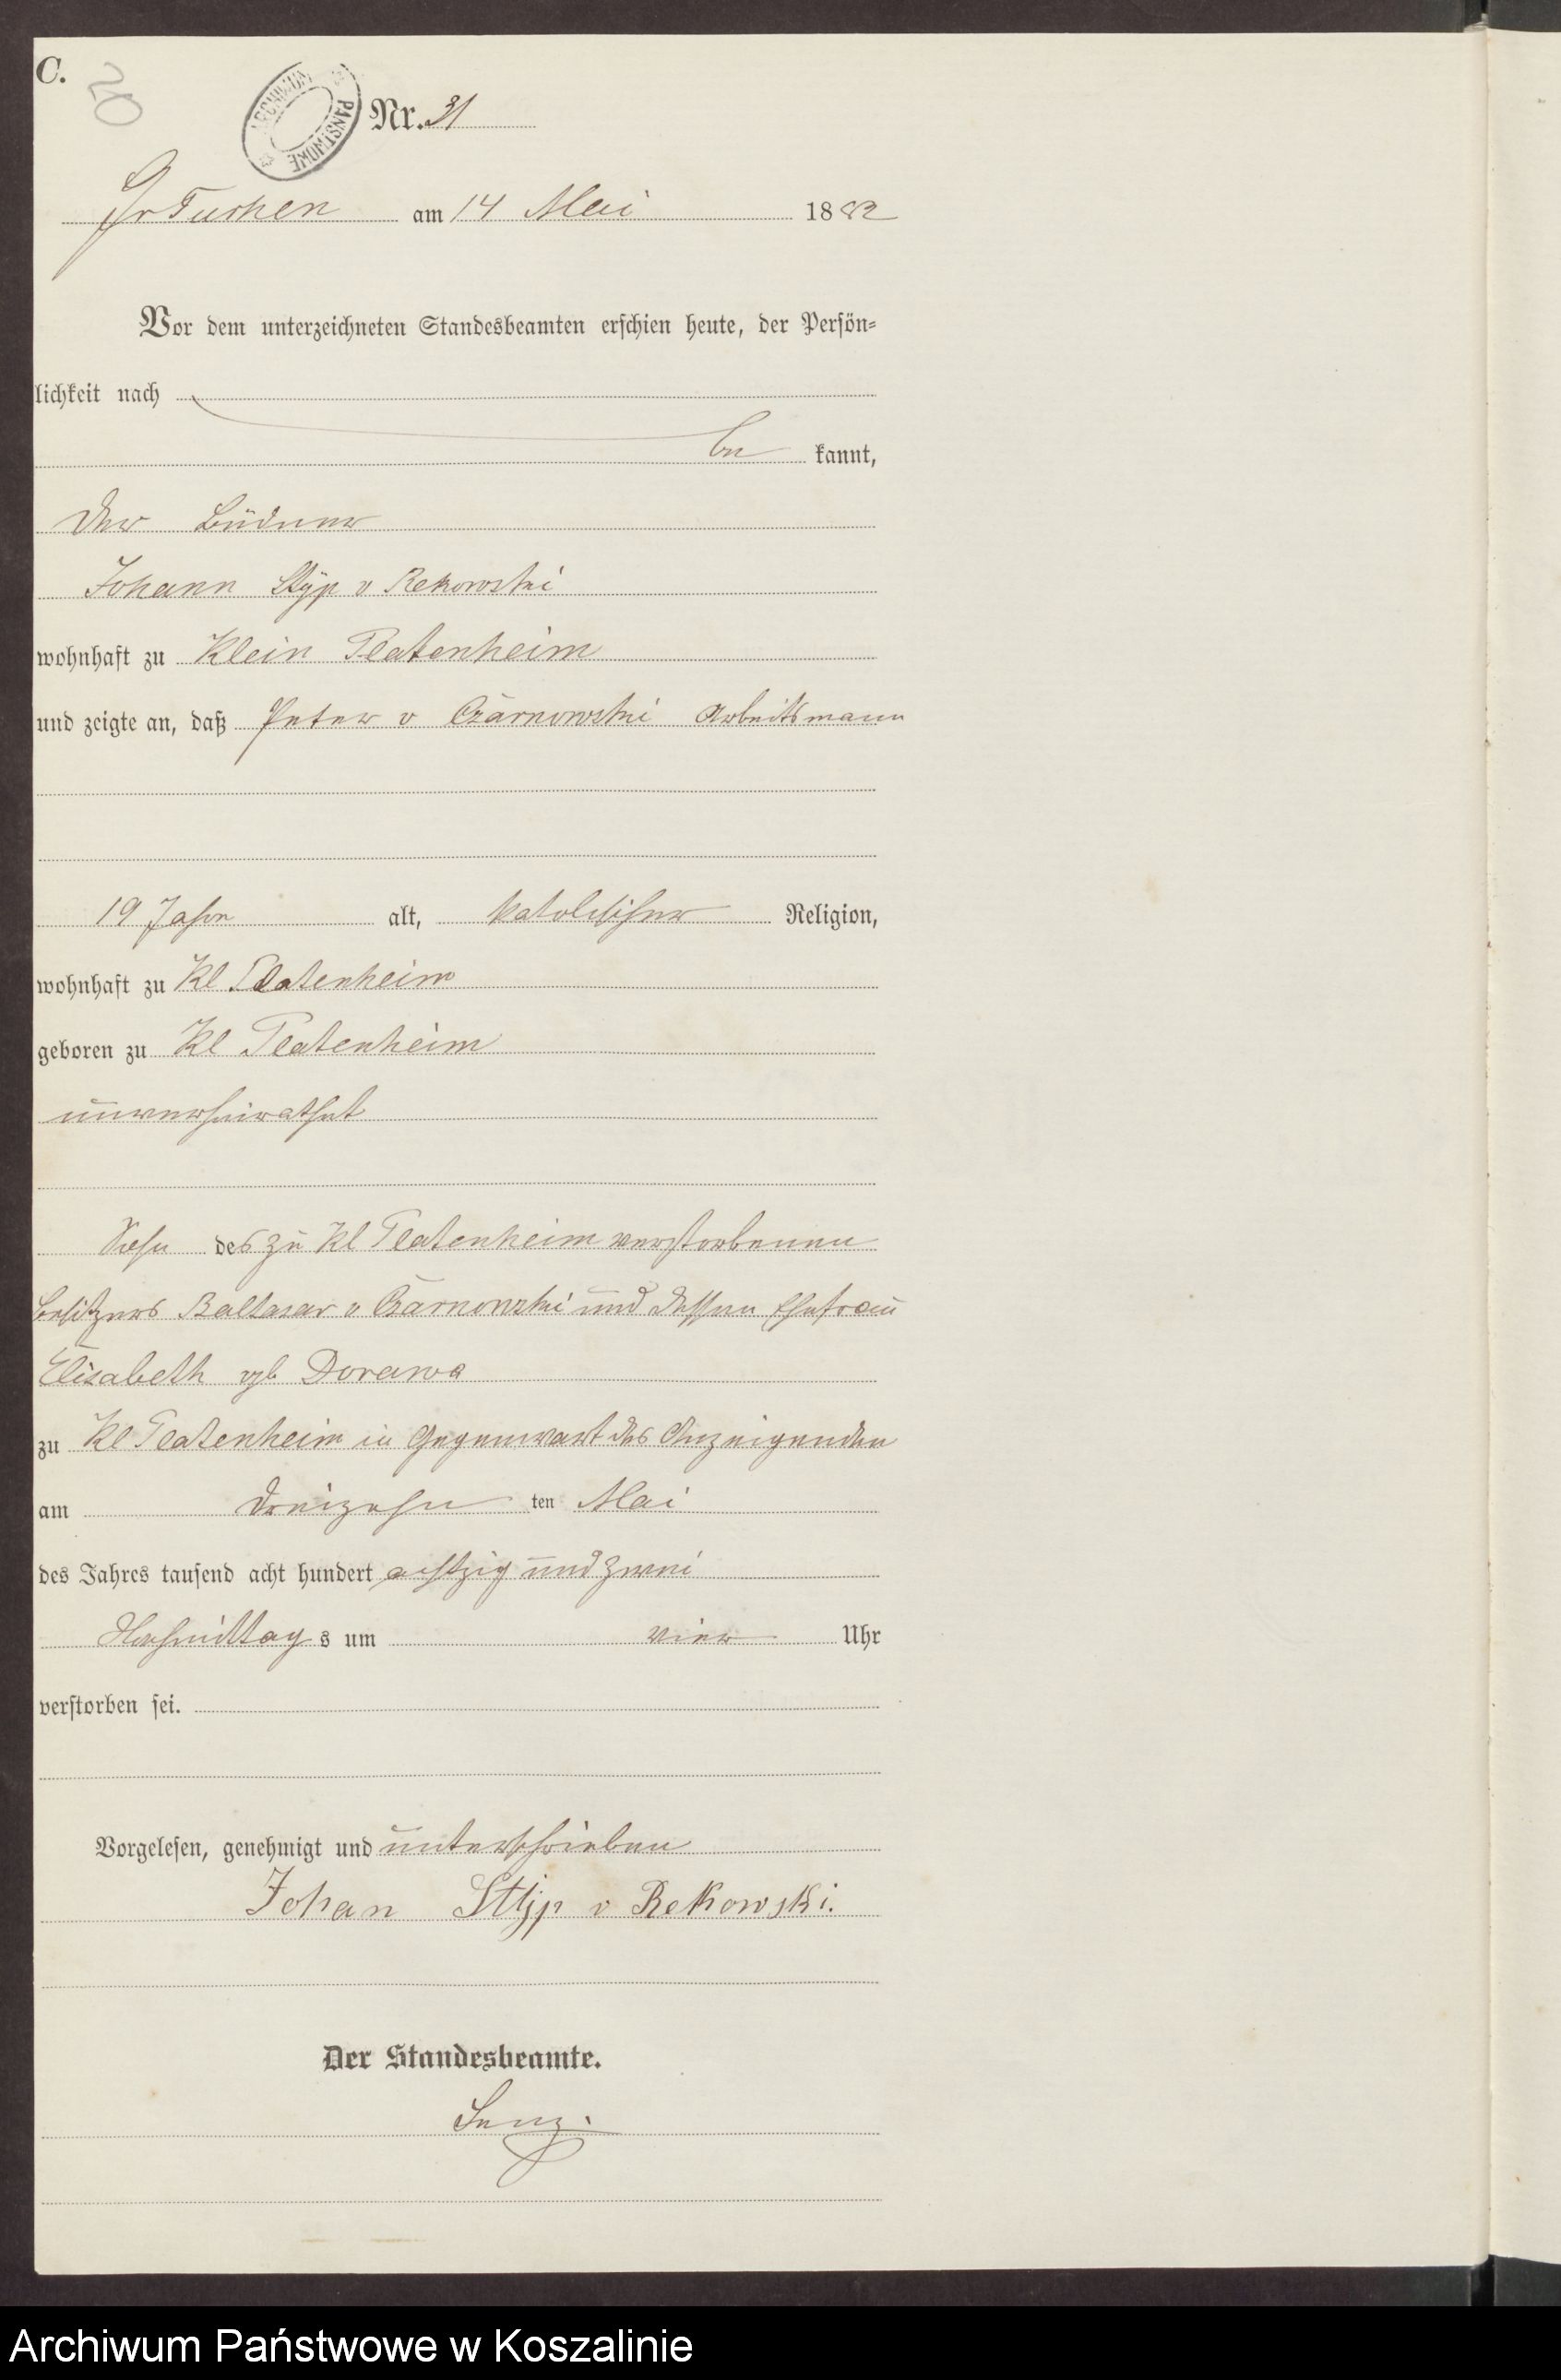 C.
20
ARCHIWUM PAŃSTWOWE
Nr. 31
Gr Tuchen am 14 Mai 1882
Vor dem unterzeichneten Standesbeamten erschien heute, der Persön-
lichkeit nach
be kannt,
der Büdner
Johann Styp v Rekowski
wohnhaft zu Klein Platenheim
und zeigte an, daß Peter v Czarnowski Arbeitsmann
19 Jahre alt, katolischer Religion,
wohnhaft zu Kl Platenheim
geboren zu Kl Platenheim
unverheirathet
Sohn des zu Kl Platenheim verstorbenen
Besitzers Baltasar v Czarnowski und dessen Ehefrau
Elisabeth geb Dorawa
zu Kl Platenheim in Gegenwart des Anzeigenden
am dreizehn ten Mai
des Jahres tausend acht hundert achtzig und zwei
Nachmittag s um vier Uhr
verstorben sei.
Vorgelesen, genehmigt und unterschrieben
Johan Styp v Rekowski.
Der Standesbeamte.
Lenz.
Archiwum Państwowe w Koszalinie